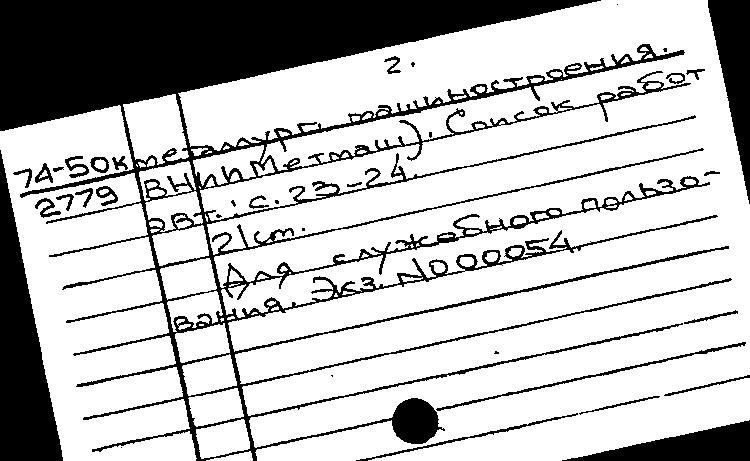 2.
74-50к металлург. машиностроения.
2779 ВНИИМетмаш). Список работ
авт.: с. 23-24.
21 см.
Для служебного пользо-
вания. Экз. N000054.